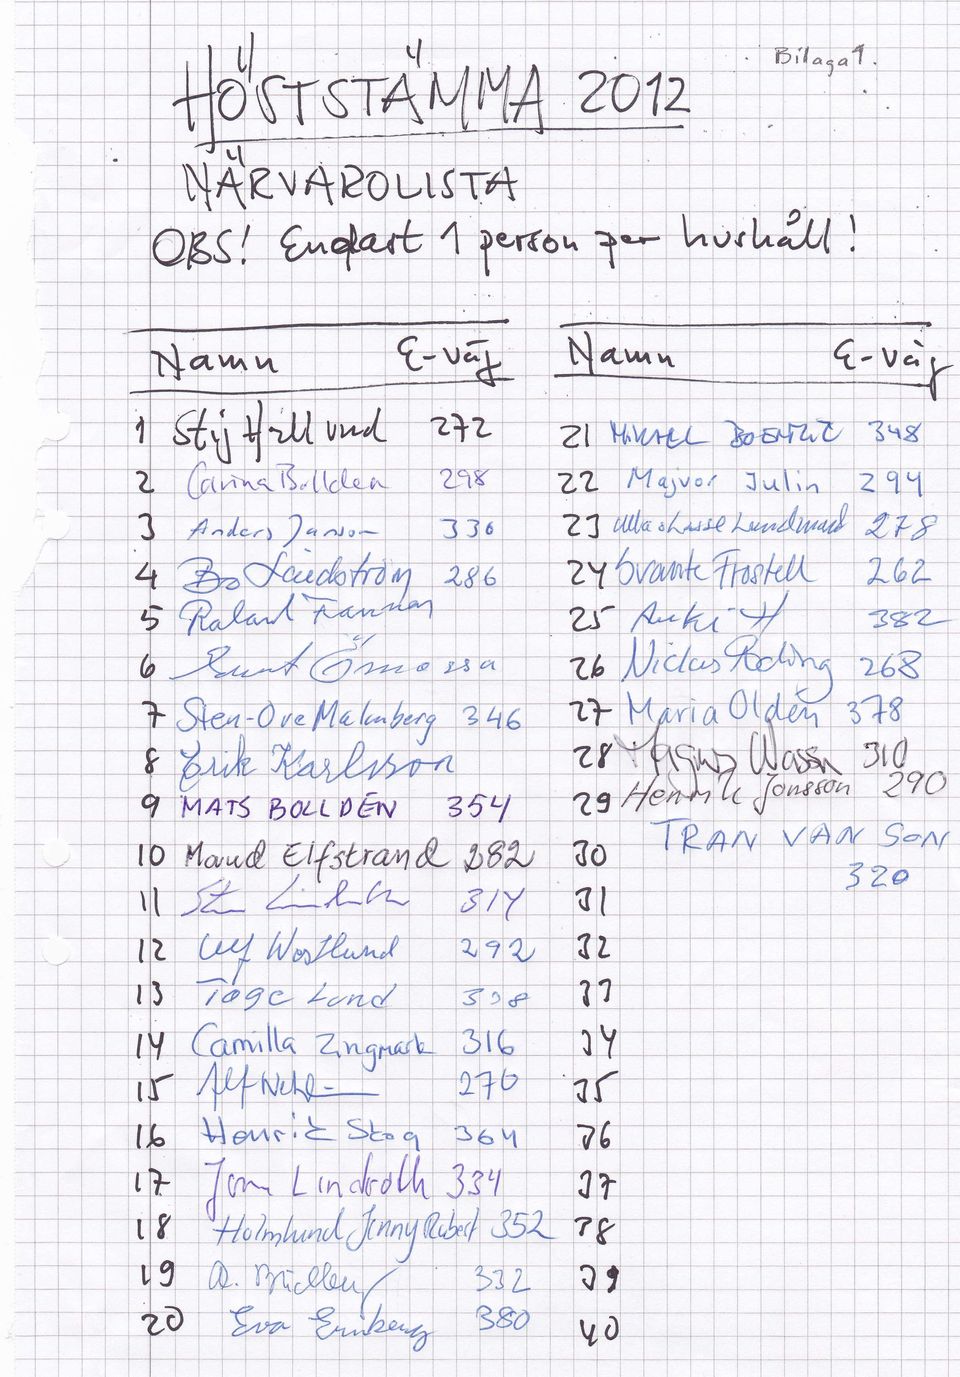 Bilaga 1.
HÖSTSTÄMMA 2012
NÄRVAROLISTA
OBS! Endast 1 person per hushåll!
Namn E-väg
1 Stig Hällund 272
2 Carina Bollden 298
3 Anders Janson 330
4 Bo Lindström 286
5 Roland
6
7 Sten-Ove Malmberg 346
8 Erik Karlsson
9 MATS BOLLDÉN 354
10 Maud Elfstrand 282
11 314
12 Ulf Westlund 292
13 Tage Lund
14 Camilla Zingmark 316
15 Alf 270
16 Henrik Skog 364
17 Lindroth 334
18 Holmlund Jenny Robert 352
19 332
20 Eva 380
Namn E-väg
21 MIKAEL 348
22 Majvor Julin 294
23 Lundmark 278
24 Svante Frostell 262
25 382
26 Niclas 268
27 Maria Oldén 378
28 Magnus 310
29 Henrik Jonsson 290
30 TRAN VAN SON
320
31
32
33
34
35
36
37
38
39
40